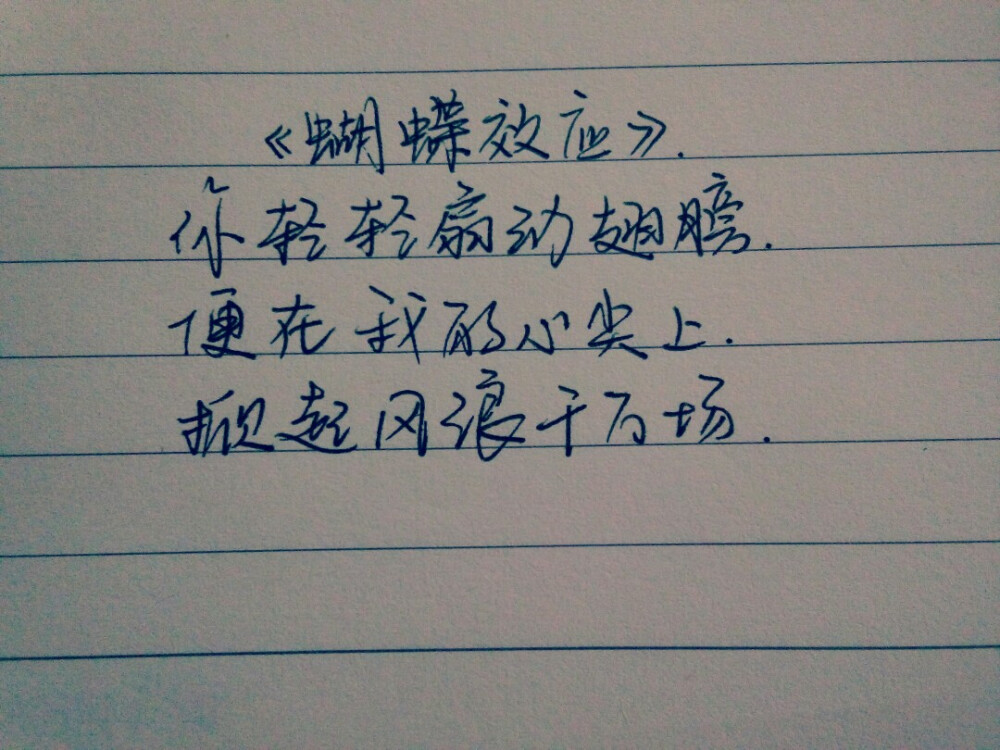 《蝴蝶效应》.
你轻轻扇动翅膀.
便在我的心尖上.
掀起风浪千万场.